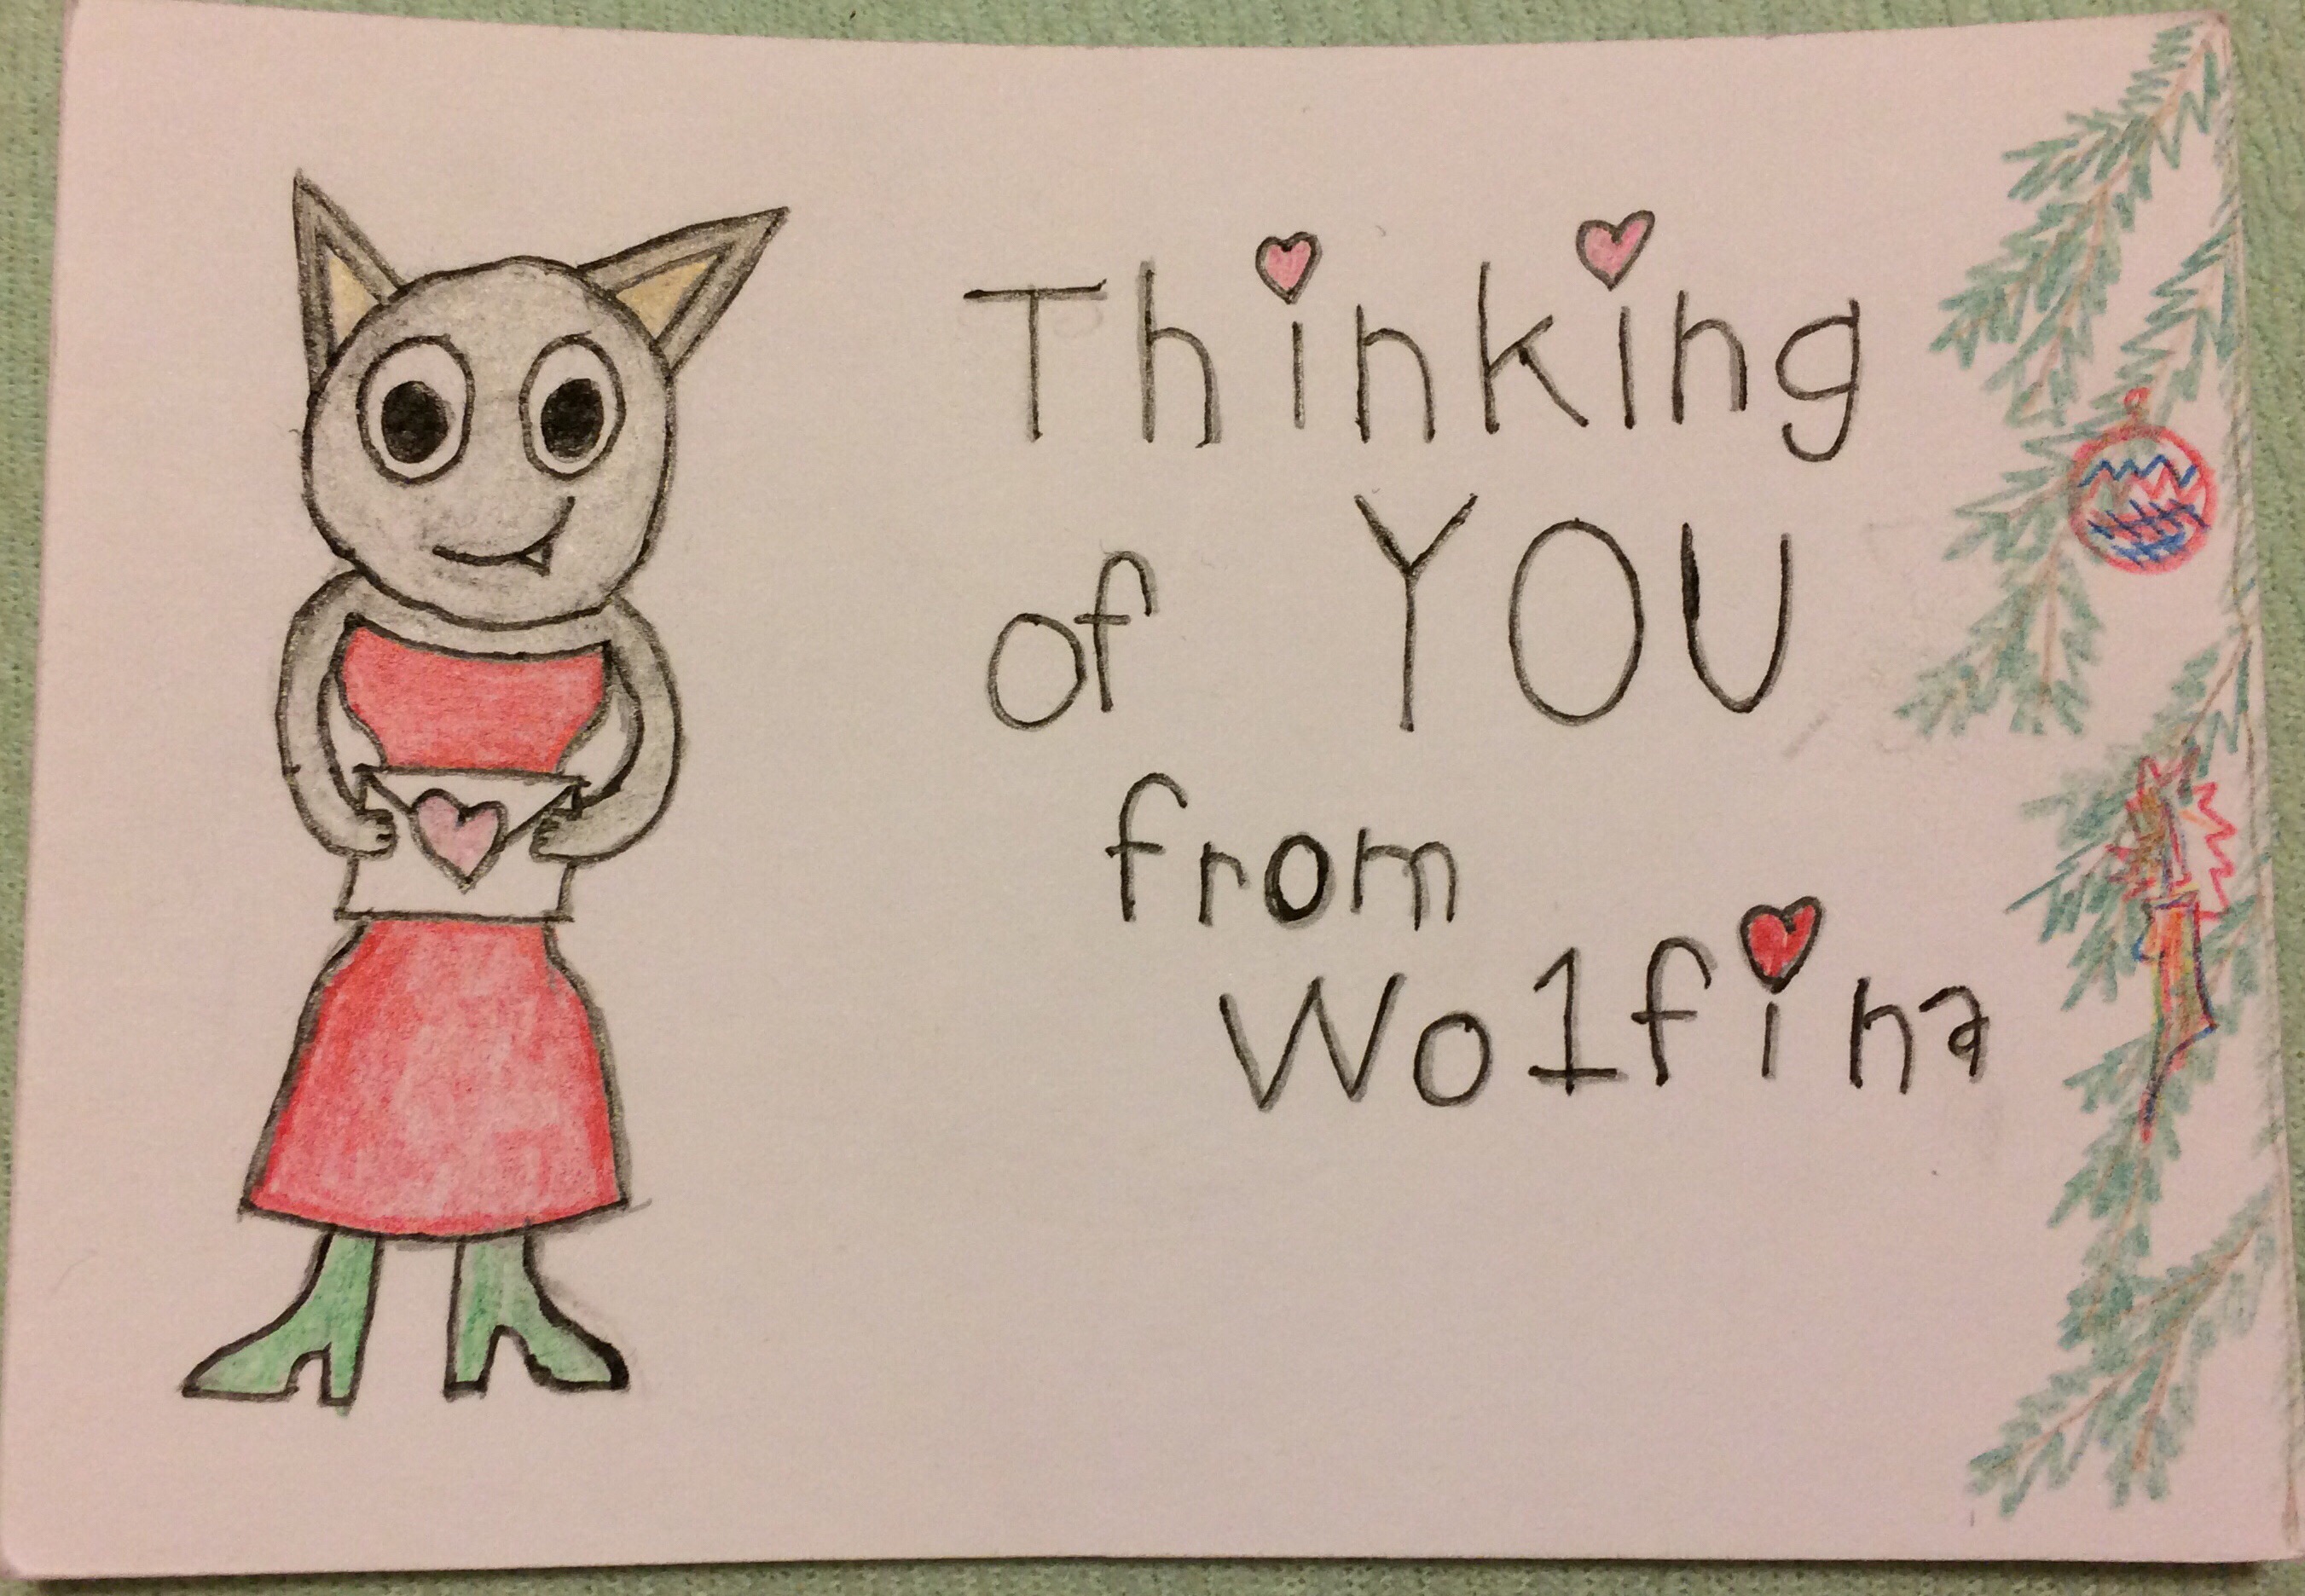 Thinking
of YOU
from
Wolfina